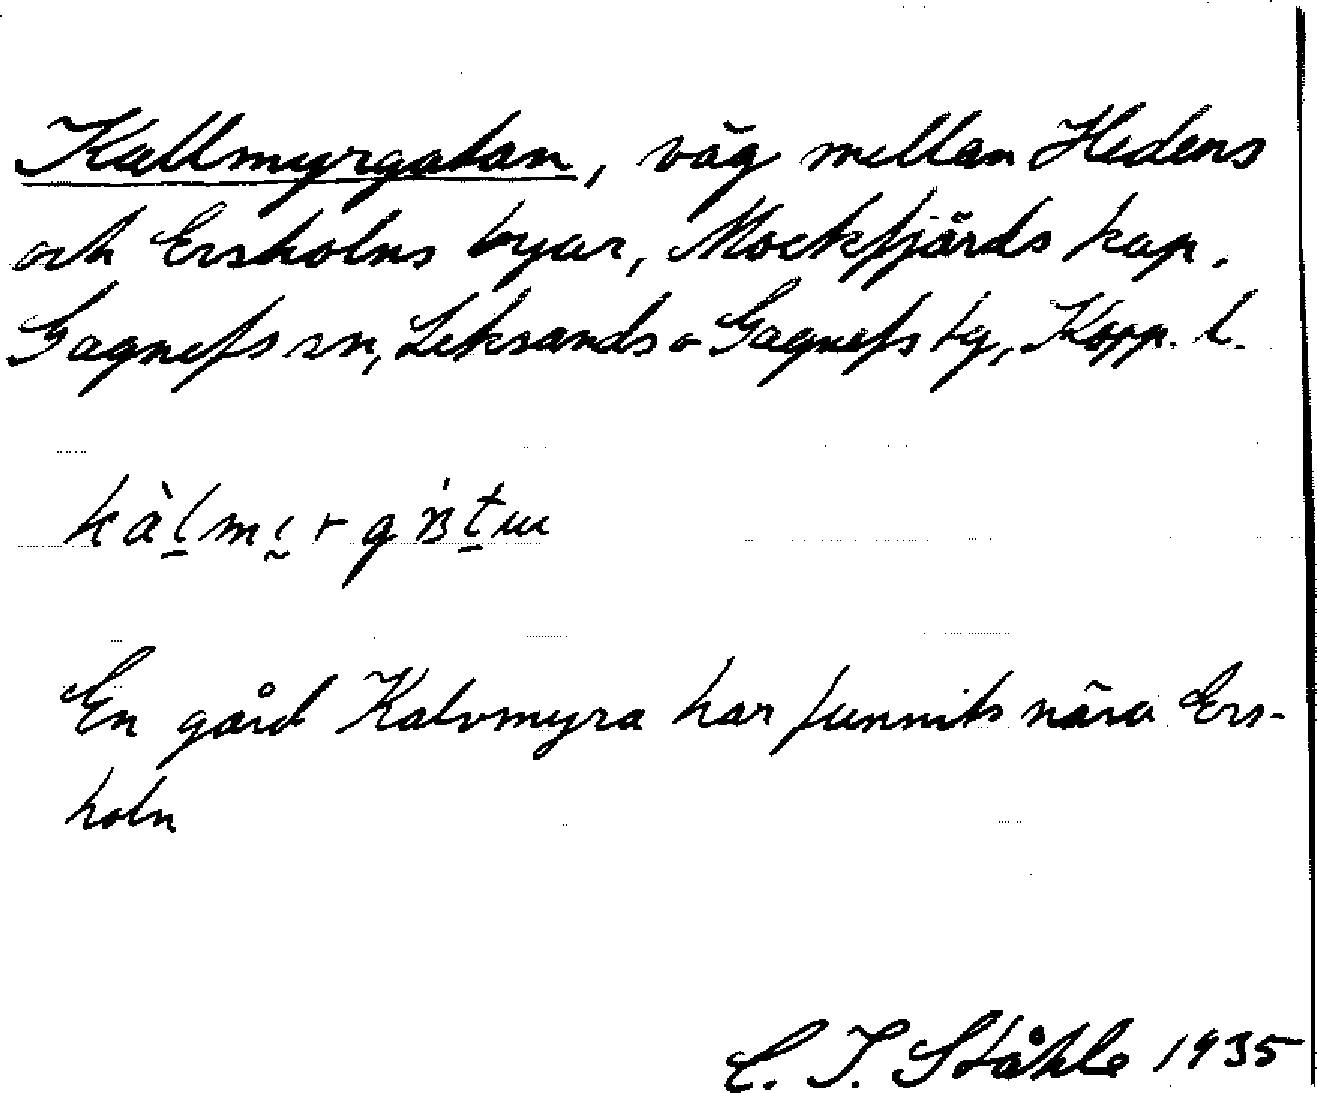 Kallmyrgatan, väg mellan Hedens
och Ersholns byar, Mockfjärds kap.
Gagnefs sn, Leksands o Gagnefs tg, Kopp. l.
En gård Kalvmyra har funnits nära Ers-
holn
C. I. Ståhle 1935